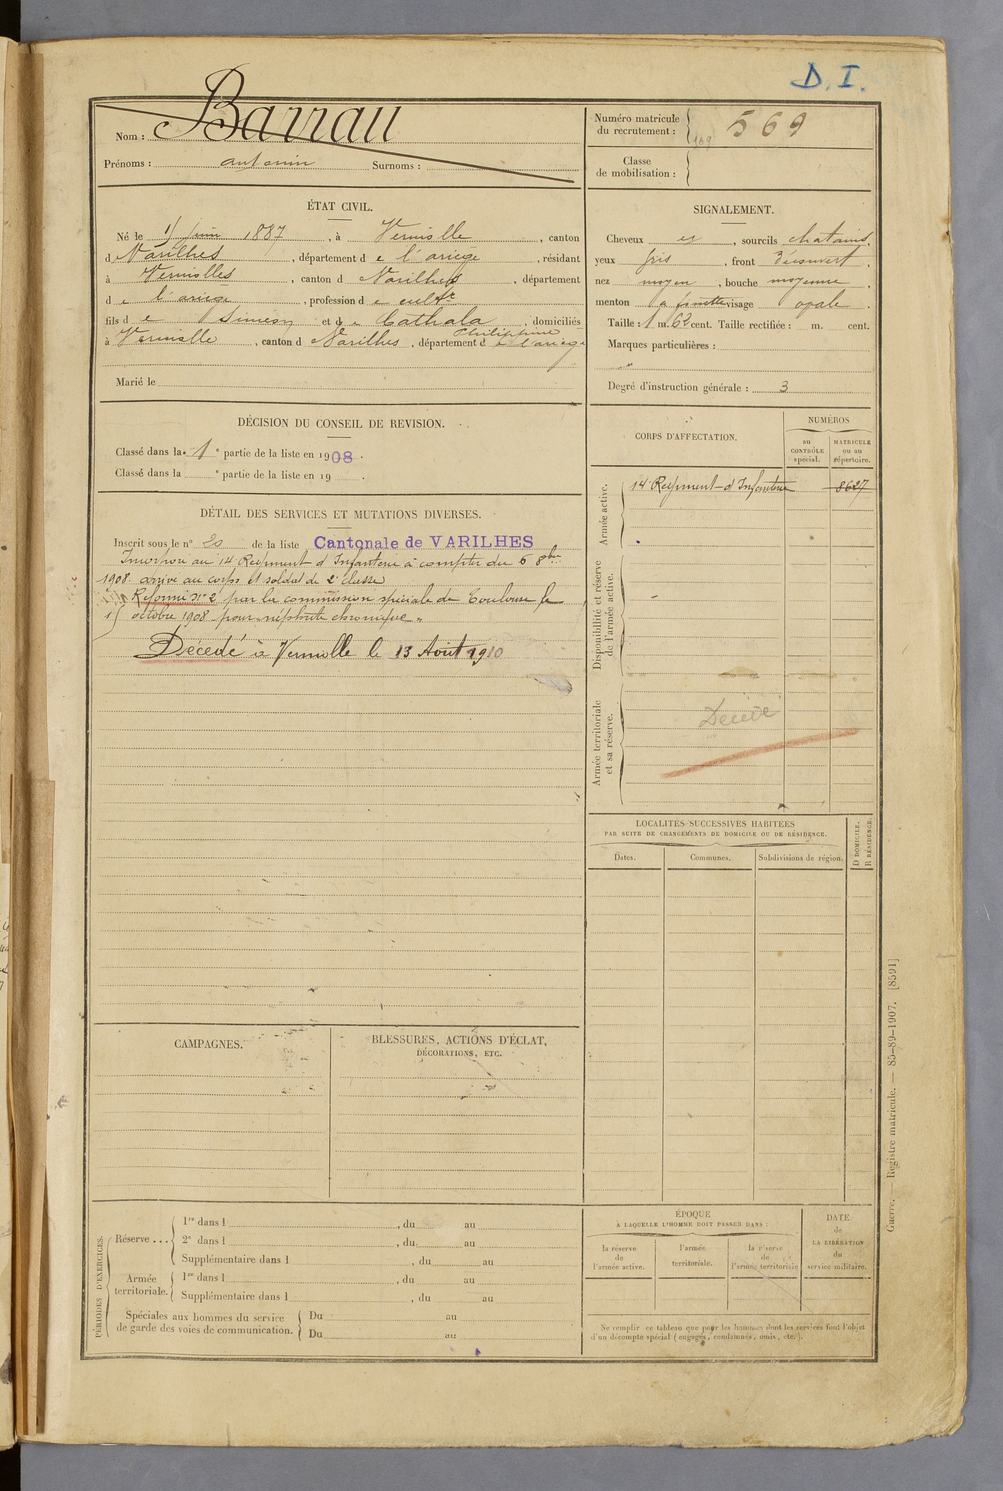 D. I.
Nom : Barrau
Prénoms : antonin Surnoms :
Numéro matricule du recrutement : 569
Classe de mobilisation :
ÉTAT CIVIL.
Né le 15 juin 1887, à Verniolle, canton
d Varilhes, département de l'ariège, résidant
à Verniolles, canton d Varilhes, département
de l'ariège, profession de cultr
fils de Siméon et de Cathala Philippine, domiciliés
à Verniolle, canton d Varilhes, département de l'ariège
Marié le
SIGNALEMENT.
Cheveux et, sourcils chatains,
yeux gris, front découvert,
nez moyen, bouche moyenne,
menton à fossette visage ovale
Taille : 1 m. 63 cent. Taille rectifiée : m. cent.
Marques particulières :
"
Degré d'instruction générale : 3
DÉCISION DU CONSEIL DE REVISION.
Classé dans la 1e partie de la liste en 1908.
Classé dans la e partie de la liste en 19 .
DÉTAIL DES SERVICES ET MUTATIONS DIVERSES.
Inscrit sous le n° 20 de la liste Cantonale de VARILHES
Incorporé au 14 Régiment d'Infanterie à compter du 6 8bre
1908. arrivé au corps et soldat de 2e classe
Réformé n° 2 par la commission spéciale de Toulouse le
15 octobre 1908 pour néphrite chronique "
Décédé à Verniolle le 13 Août 1910
CORPS D'AFFECTATION.
NUMÉROS
au CONTRÔLE spécial.
MATRICULE ou au répertoire.
Armée active.
14 Régiment d'Infanterie 8627
Disponibilité et réserve de l'armée active.
Armée territoriale et sa réserve.
Décédé
LOCALITÉS SUCCESSIVES HABITÉES
PAR SUITE DE CHANGEMENTS DE DOMICILE OU DE RÉSIDENCE.
Dates. Communes. Subdivisions de région.
D DOMICILE.
R RÉSIDENCE.
CAMPAGNES.
BLESSURES, ACTIONS D'ÉCLAT,
DÉCORATIONS, ETC.
PÉRIODES D'EXERCICES.
Réserve ...
1re dans l , du au
2e dans l , du au
Supplémentaire dans l , du au
Armée territoriale.
1re dans l , du au
Supplémentaire dans l , du au
Spéciales aux hommes du service de garde des voies de communication.
Du au
Du au
ÉPOQUE
À LAQUELLE L'HOMME DOIT PASSER DANS :
la réserve de l'armée active.
l'armée territoriale.
la réserve de l'armée territoriale
DATE de LA LIBÉRATION du service militaire.
Ne remplir ce tableau que pour les hommes dont les services font l'objet
d'un décompte spécial (engagés, condamnés, omis, etc.).
Guerre. — Registre matricule. — 85-89-1907. [8591]